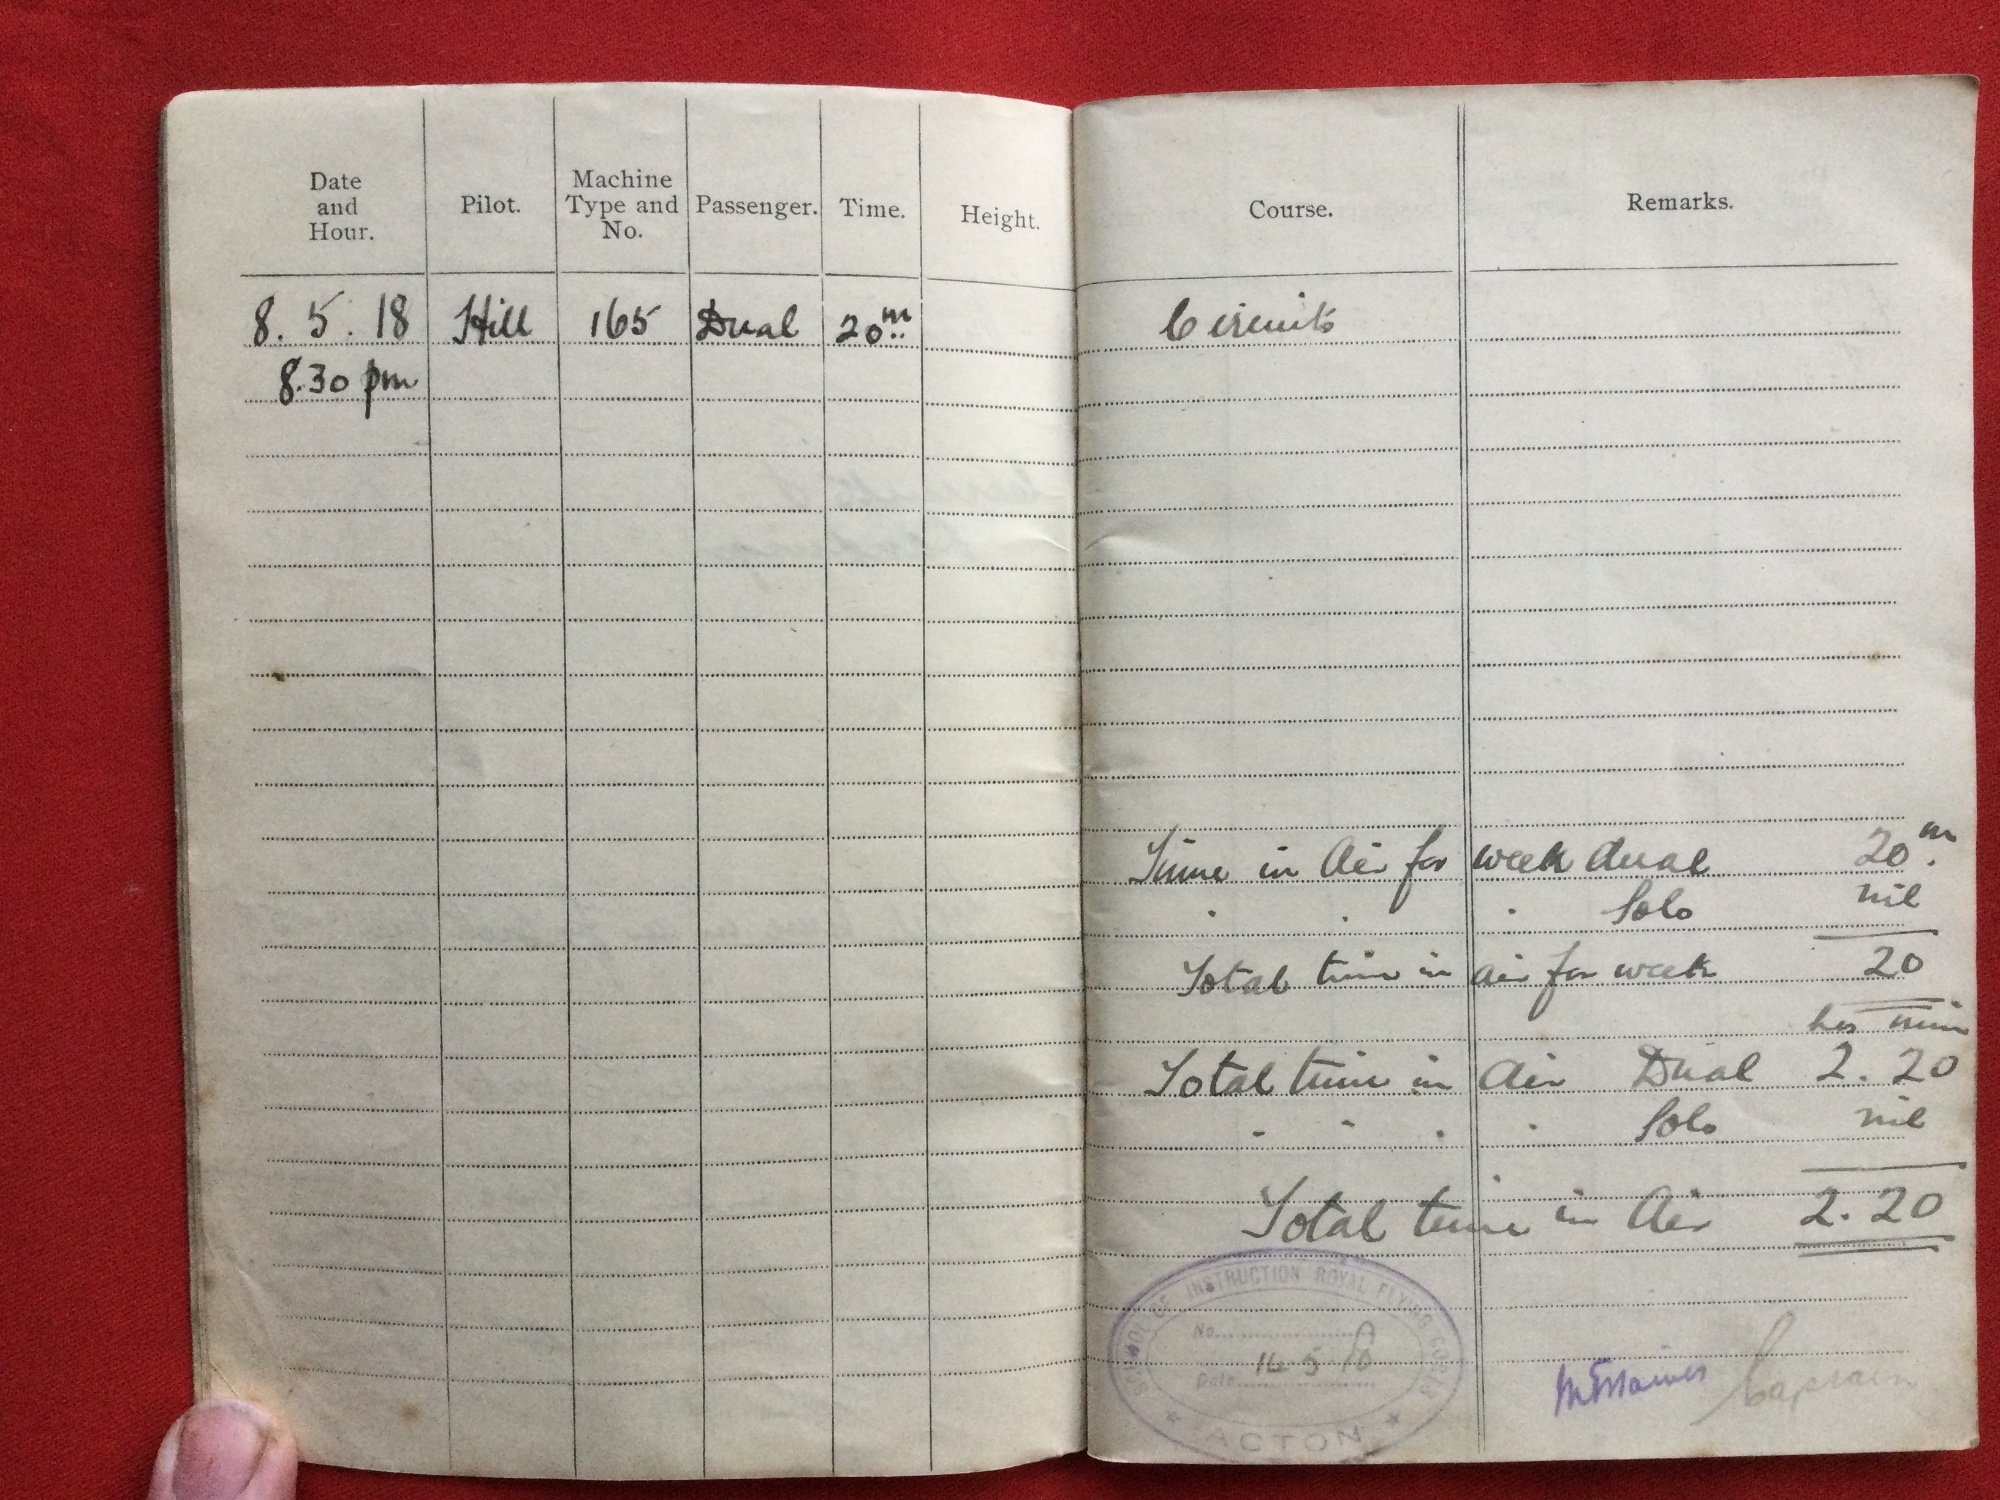 Date and Hour.
Pilot.
Machine Type and No.
Passenger.
Time.
Height.
Course.
Remarks.
8. 5. 18 Hill 165 Dual 20m Circuits
8.30 pm
Time in Air for week dual 20m.
" " " Solo nil
Total time in air for week 20
hrs min
Total time in Air Dual 2. 20
" " " " Solo nil
Total time in Air 2. 20
SCHOOL OF INSTRUCTION ROYAL FLYING CORPS
No.
Date 14.5.18
ACTON
Captain